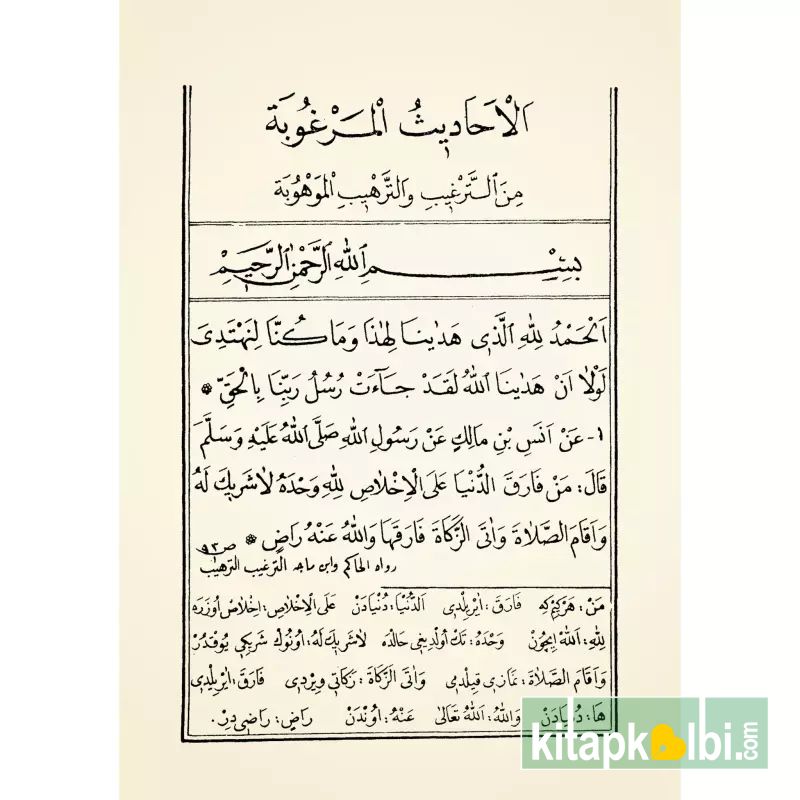 اَلْاَحَادِيثُ الْمَرْغُوبَةِ
مِنَ التَّرْغِيبِ وَالتَّرْهِيبِ الْمَوْهُوبَةِ
بِسْمِ اللهِ الرَّحْمٰنِ الرَّحِيمِ
اَلْحَمْدُ لِلّٰهِ الَّذِى هَدٰينَا لِهٰذَا وَمَا كُنَّا لِنَهْتَدِىَ
لَوْلَا اَنْ هَدٰينَا اللهُ لَقَدْ جَآءَتْ رُسُلُ رَبِّنَا بِالْحَقِّ *
١- عَنْ اَنَسِ بْنِ مَالِكٍ عَنْ رَسُولِ اللهِ صَلَّى اللهُ عَلَيْهِ وَسَلَّمَ
قَالَ: مَنْ فَارَقَ الدُّنْيَا عَلَى الْاِخْلَاصِ لِلّٰهِ وَحْدَهُ لَا شَرِيكَ لَهُ
وَاَقَامَ الصَّلَاةَ وَاٰتَى الزَّكَاةَ فَارَقَهَا وَاللهُ عَنْهُ رَاضٍ *
رواه الحاكم وابن ماجه الترغيب الترهيب ص٩٢
مَنْ: هَرْكِيمْ كِه فَارَقَ: اَيْرِيلْدِى اَلدُّنْيَا: دُنْيَادَنْ عَلَى الْاِخْلَاصِ: اِخْلَاصْ اُوزَرَه
لِلّٰهِ: اَللهْ اِيچُونْ وَحْدَهُ: تَكْ اُولْدِيغِى حَالْدَه لَا شَرِيكَ لَهُ: اُونُوكْ شَرِيكِى يُوقْدُرْ
وَاَقَامَ الصَّلَاةَ: نَمَازِى قِيلْدِى وَاٰتَى الزَّكَاةَ: زَكَاتِى وِيرْدِى فَارَقَ: اَيْرِيلْدِى
هَا: دُنْيَادَنْ وَاللهُ: اَللهُ تَعَالٰى عَنْهُ: اُونْدَنْ رَاضٍ: رَاضِى دِرْ.
kitapkalbi.com